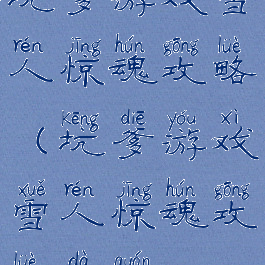 坑爹游戏雪
rén jīng hún gōng lüè
人惊魂攻略
kēng diē yóu xì
(坑爹游戏
xuě rén jīng hún gōng
雪人惊魂攻
lüè dà quán